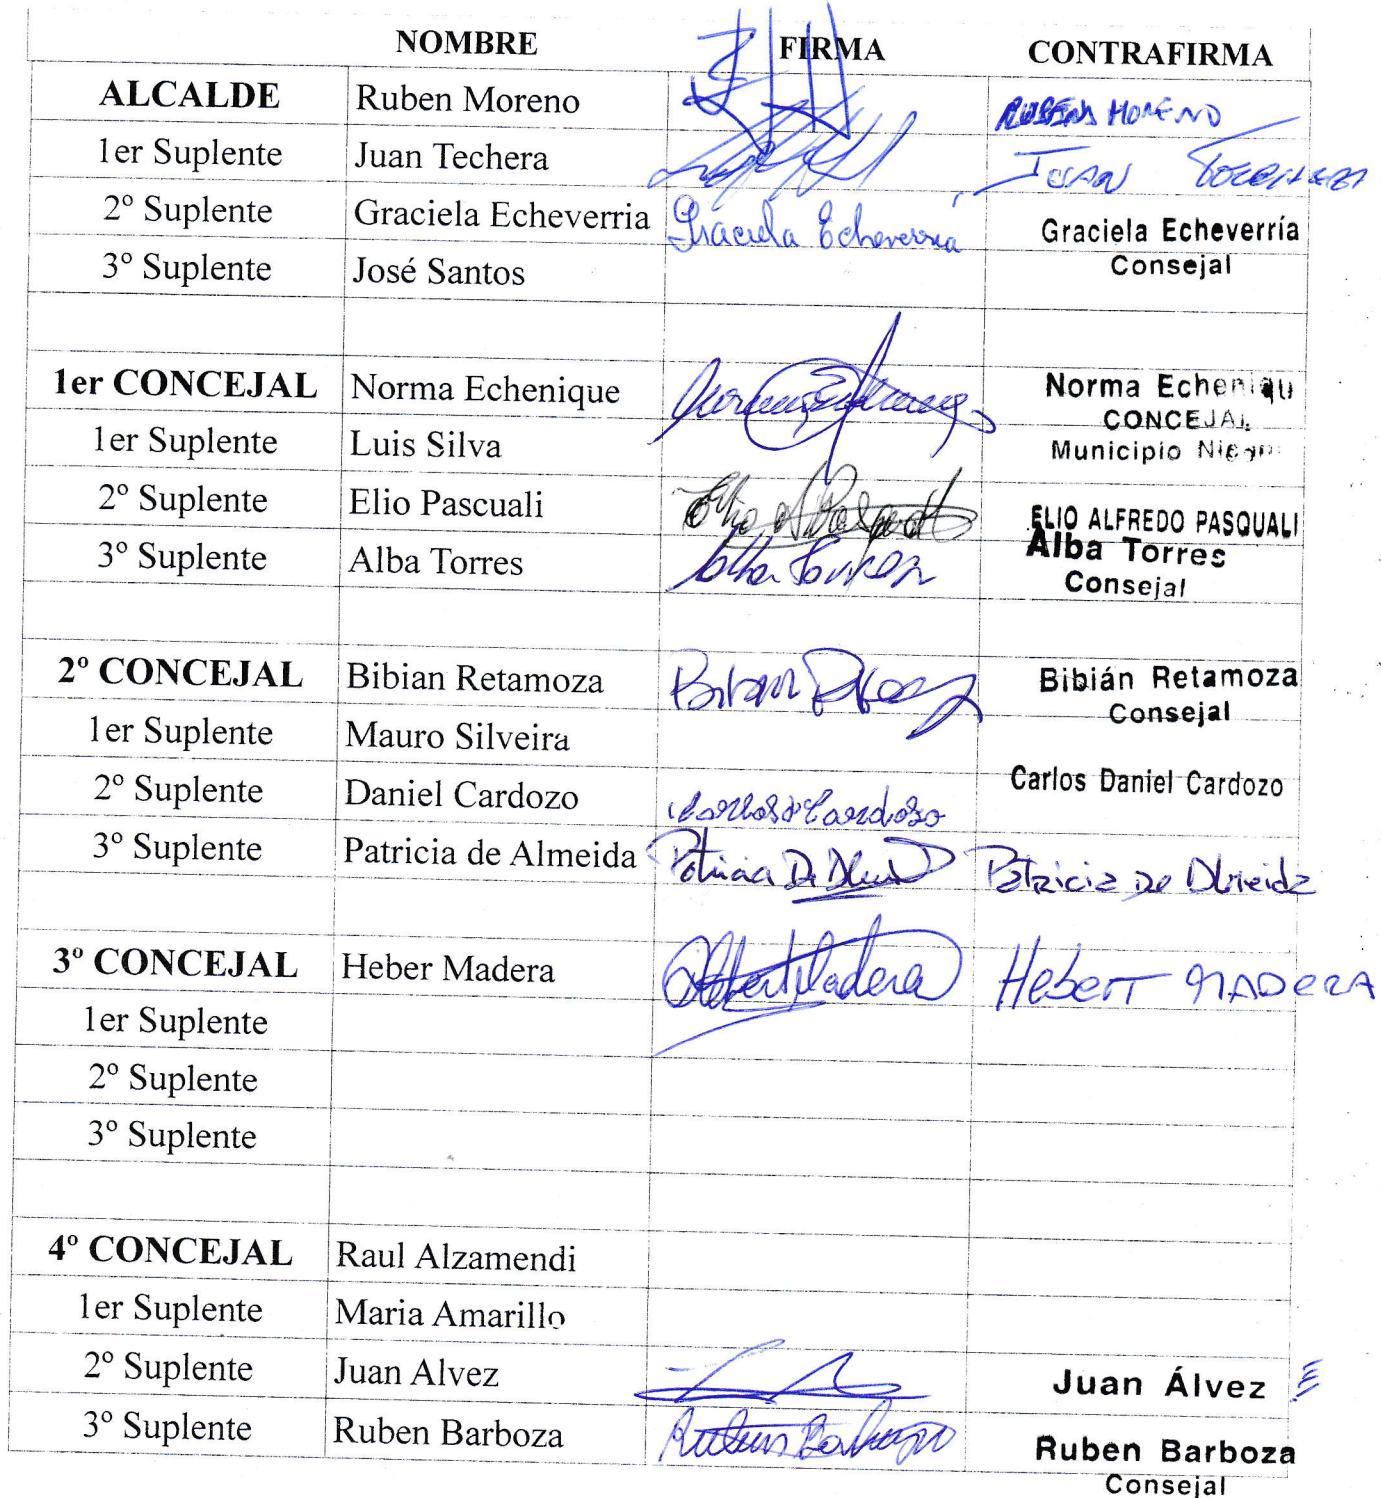 NOMBRE FIRMA CONTRAFIRMA
ALCALDE Ruben Moreno RUBEN MORENO
1er Suplente Juan Techera JUAN TECHERA
2º Suplente Graciela Echeverria Graciela Echeverria Graciela Echeverría
Consejal
3º Suplente José Santos
1er CONCEJAL Norma Echenique Norma Echeniqu
CONCEJAL
Municipio
1er Suplente Luis Silva
2º Suplente Elio Pascuali ELIO ALFREDO PASQUALI
3º Suplente Alba Torres Alba Torres Alba Torres
Consejal
2º CONCEJAL Bibian Retamoza Bibián Retamoza
Consejal
1er Suplente Mauro Silveira
2º Suplente Daniel Cardozo Carlos D Cardozo Carlos Daniel Cardozo
3º Suplente Patricia de Almeida Patricia De Patricia De Almeida
3º CONCEJAL Heber Madera Hebert Madera Hebert MADERA
1er Suplente
2º Suplente
3º Suplente
4º CONCEJAL Raul Alzamendi
1er Suplente Maria Amarillo
2º Suplente Juan Alvez Juan Álvez
3º Suplente Ruben Barboza Ruben Barboza Ruben Barboza
Consejal